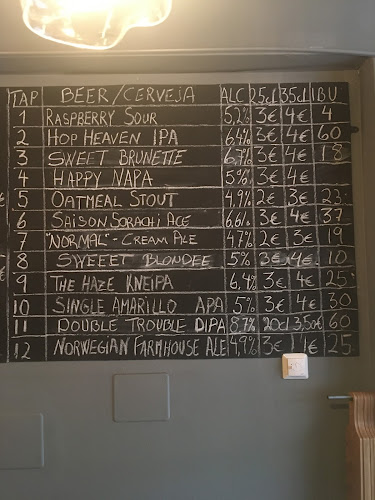 TAP BEER/CERVEJA ALC 25cl 35cl IBU
1 RASPBERRY SOUR 5,2% 3€ 4€ 4
2 HOP HEAVEN IPA 6,4% 3€ 4€ 60
3 SWEET BRUNETTE 6,7% 3€ 4€ 18
4 HAPPY NAPA 5% 3€ 4€
5 OATMEAL STOUT 4,9% 2€ 3€ 23
6 SAISON SORACHI ACE 6,6% 3€ 4€ 37
7 "NORMAL"- CREAM ALE 4,7% 2€ 3€ 19
8 SWEEET BLONDEE 5% 3€ 4€ 10
9 THE HAZE KNEIPA 6,4% 3€ 4€ 25
10 SINGLE AMARILLO APA 5% 3€ 4€ 30
11 DOUBLE TROUBLE DIPA 8,7% 20cl 3,50€ 60
12 NORWEGIAN FARMHOUSE ALE 4,9% 3€ 4€ 25